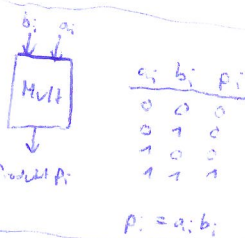 b_i a_i
Mult
Produkt p_i
a_i b_i p_i
0 0 0
0 1 0
1 0 0
1 1 1
p_i = a_i b_i